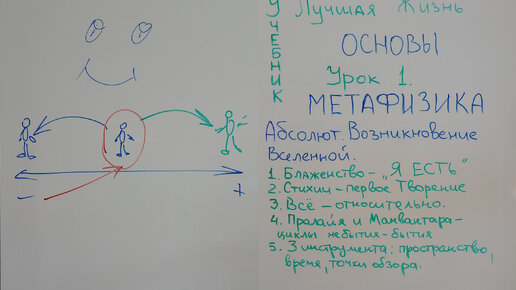 УЧЕБНИК
Лучшая Жизнь
ОСНОВЫ
Урок 1.
МЕТАФИЗИКА
Абсолют. Возникновение
Вселенной.
1. Блаженство - „Я ЕСТЬ"
2. Стихии - первое Творение
3. Всё - относительно.
4. Пралайя и Манвантара-
циклы небытия-бытия
5. 3 инструмента: пространство,
время, точки обзора.
- +